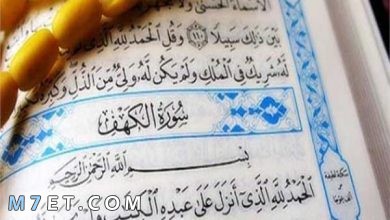 الْأَسْمَاءُ الْحُسْنَىٰ وَلَا
بَيْنَ ذَٰلِكَ سَبِيلًا ﴿١١٠﴾ وَقُلِ الْحَمْدُ لِلَّهِ الَّذِى
لَّهُ شَرِيكٌ فِى الْمُلْكِ وَلَمْ يَكُن لَّهُ وَلِىٌّ مِّنَ الذُّلِّ وَكَبِّرْهُ
سُورَةُ الْكَهْفِ
بِسْمِ اللَّهِ الرَّحْمَٰنِ الرَّحِيمِ
الْحَمْدُ لِلَّهِ الَّذِى أَنزَلَ عَلَىٰ عَبْدِهِ الْكِتَٰبَ
M7ET.COM